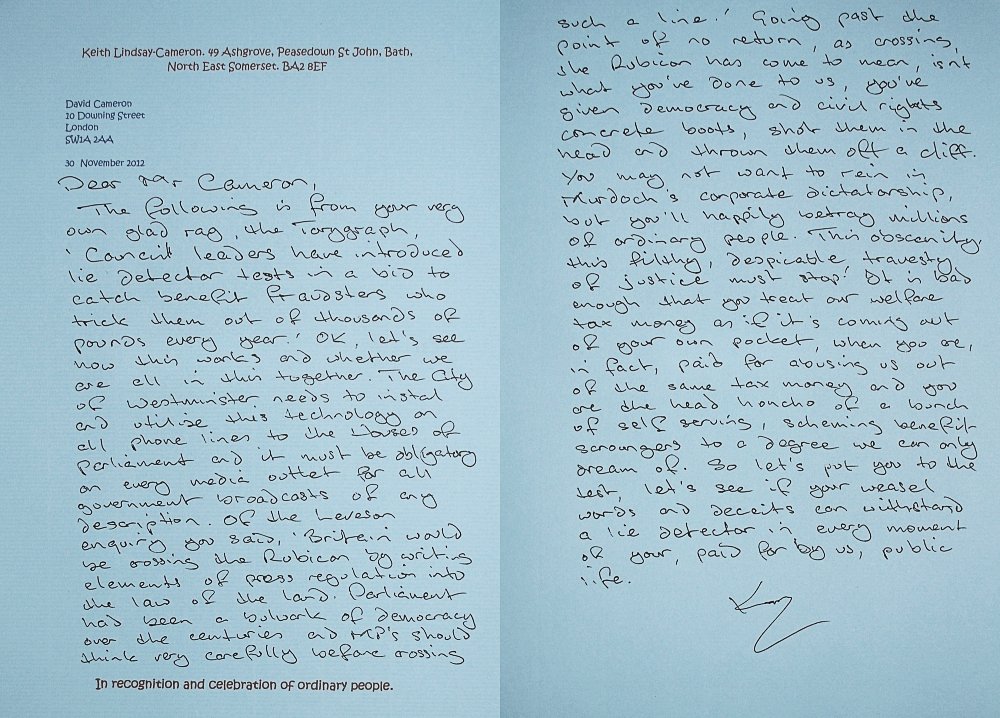 Keith Lindsay-Cameron. 49 Ashgrove, Peasedown St John, Bath,
North East Somerset. BA2 8EF
David Cameron
10 Downing Street
London
SW1A 2AA
30 November 2012
Dear Mr Cameron,
The following is from your very
own glad rag, the Torygraph,
'Council leaders have introduced
lie detector tests in a bid to
catch benefit fraudsters who
trick them out of thousands of
pounds every year.' OK, let's see
how this works and whether we
are all in this together. The City
of Westminster needs to instal
and utilise this technology on
all phone lines to the Houses of
Parliament and it must be obligatory
on every media outlet for all
government broadcasts of any
description. Of the Leveson
enquiry you said, 'Britain would
be crossing the Rubicon by writing
elements of press regulation into
the law of the land. Parliament
had been a bulwark of democracy
over the centuries and MP's should
think very carefully before crossing
In recognition and celebration of ordinary people.
such a line.' Going past the
point of no return, as crossing
the Rubicon has come to mean, isn't
what you've done to us, you've
given democracy and civil rights
concrete boots, shot them in the
head and thrown them off a cliff.
You may not want to rein in
Murdoch's corporate dictatorship,
but you'll happily betray millions
of ordinary people. This obscenity,
this filthy, despicable travesty
of justice must stop! It is bad
enough that you treat our welfare
tax money as if it's coming out
of your own pocket, when you are,
in fact, paid for abusing us out
of the same tax money and you
are the head honcho of a bunch
of self serving, scheming benefit
scroungers to a degree we can only
dream of. So let's put you to the
test, let's see if your weasel
words and deceits can withstand
a lie detector in every moment
of your, paid for by us, public
life.